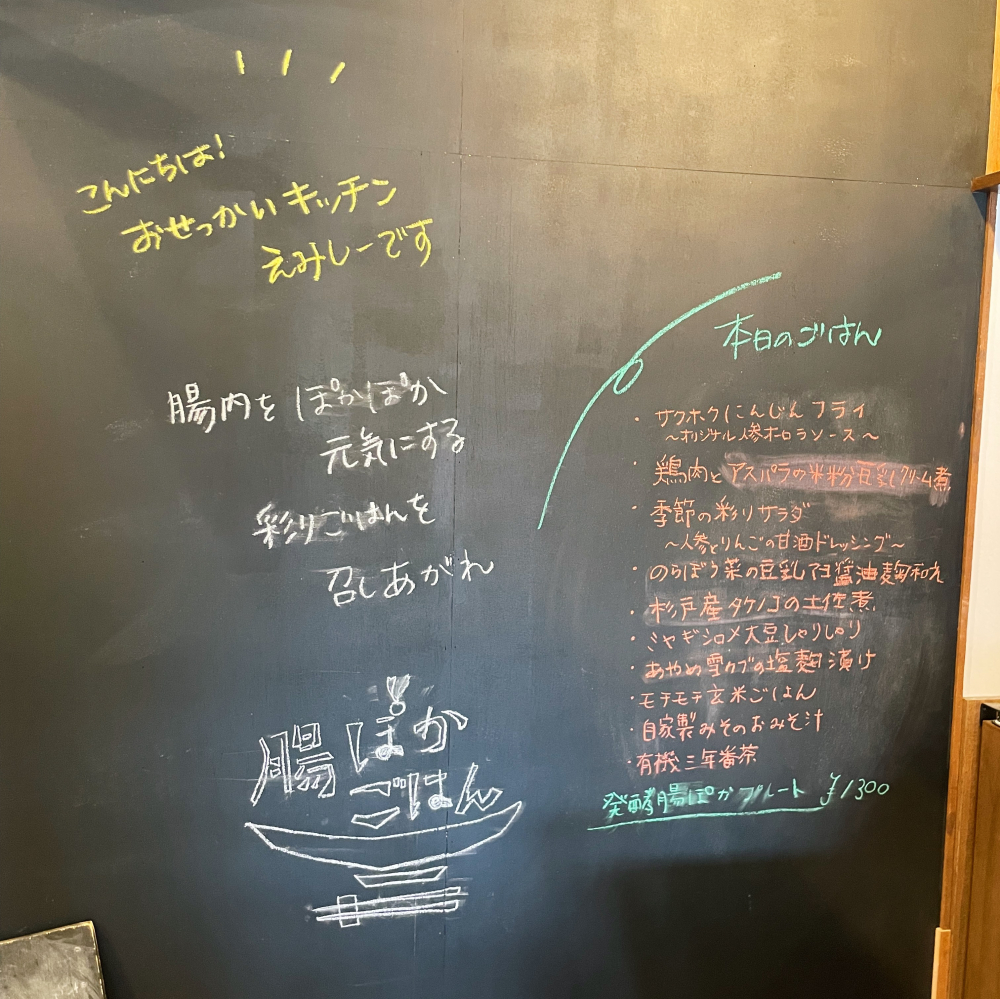 こんにちは!
おせっかいキッチン
えみしーです
腸内を ぽかぽか
元気にする
彩りごはんを
召しあがれ
腸ぽか
ごはん
本日のごはん
・サクホクにんじんフライ
～オリジナル人参オーロラソース～
・鶏肉とアスパラの米粉豆乳クリーム煮
・季節の彩りサラダ
～人参とりんごの甘酒ドレッシング～
・のらぼう菜の豆乳マヨ醤油麹和え
・杉戸産タケノコの土佐煮
・ミヤギシロメ大豆しゃりしゃり
・あやめ雪カブの塩麹漬け
・モチモチ玄米ごはん
・自家製みそのおみそ汁
・有機三年番茶
発酵腸ぽかプレート ¥1300